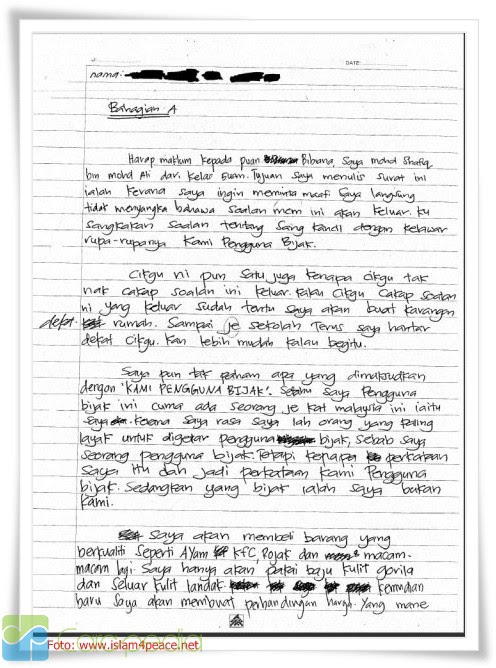 DATE:
nama:
Bahagian A
Harap maklum kepada puan Bibiana, Saya mohd Shafiq
bin mohd Ali dari kelas 5uam. Tujuan saya menulis surat ini
ialah kerana saya ingin meminta maaf. Saya langsung
tidak menyangka bahawa soalan mcm ini akan keluar. Ku
sangkakan soalan tentang Sang kancil dengan kelawar
rupa-rupanya Kami Pengguna Bijak.
Cikgu ni pun satu juga kenapa cikgu tak
nak cakap soalan ini keluar. Kalau Cikgu Cakap soalan
ni yang keluar sudah tentu saya akan buat karangan
dekat rumah. Sampai je sekolah Terus saya hantar
dekat Cikgu. Kan lebih mudah kalau begitu.
Saya pun tak paham apa yang dimaksudkan
dengan 'KAMI PENGGUNA BIJAK'. Setahu saya Pengguna
bijak ini cuma ada seorang je kat malaysia ini iaitu
saya. Kerana saya rasa saya lah orang yang paling
layak untuk digelar pengguna bijak, sebab saya
seorang pengguna bijak. Tetapi kenapa perkataan
saya itu dah jadi perkataan Kami Pengguna
bijak. Sedangkan yang bijak ialah saya bukan
kami.
Saya akan membeli barang yang
berkualiti seperti Ayam KFC, Rojak dan macam-
macam lagi. Saya hanya akan pakai baju kulit gorila
dan seluar kulit landak kemudian
baru saya akan membuat perbandingan harga. Yang mane
Foto: www.islam4peace.net